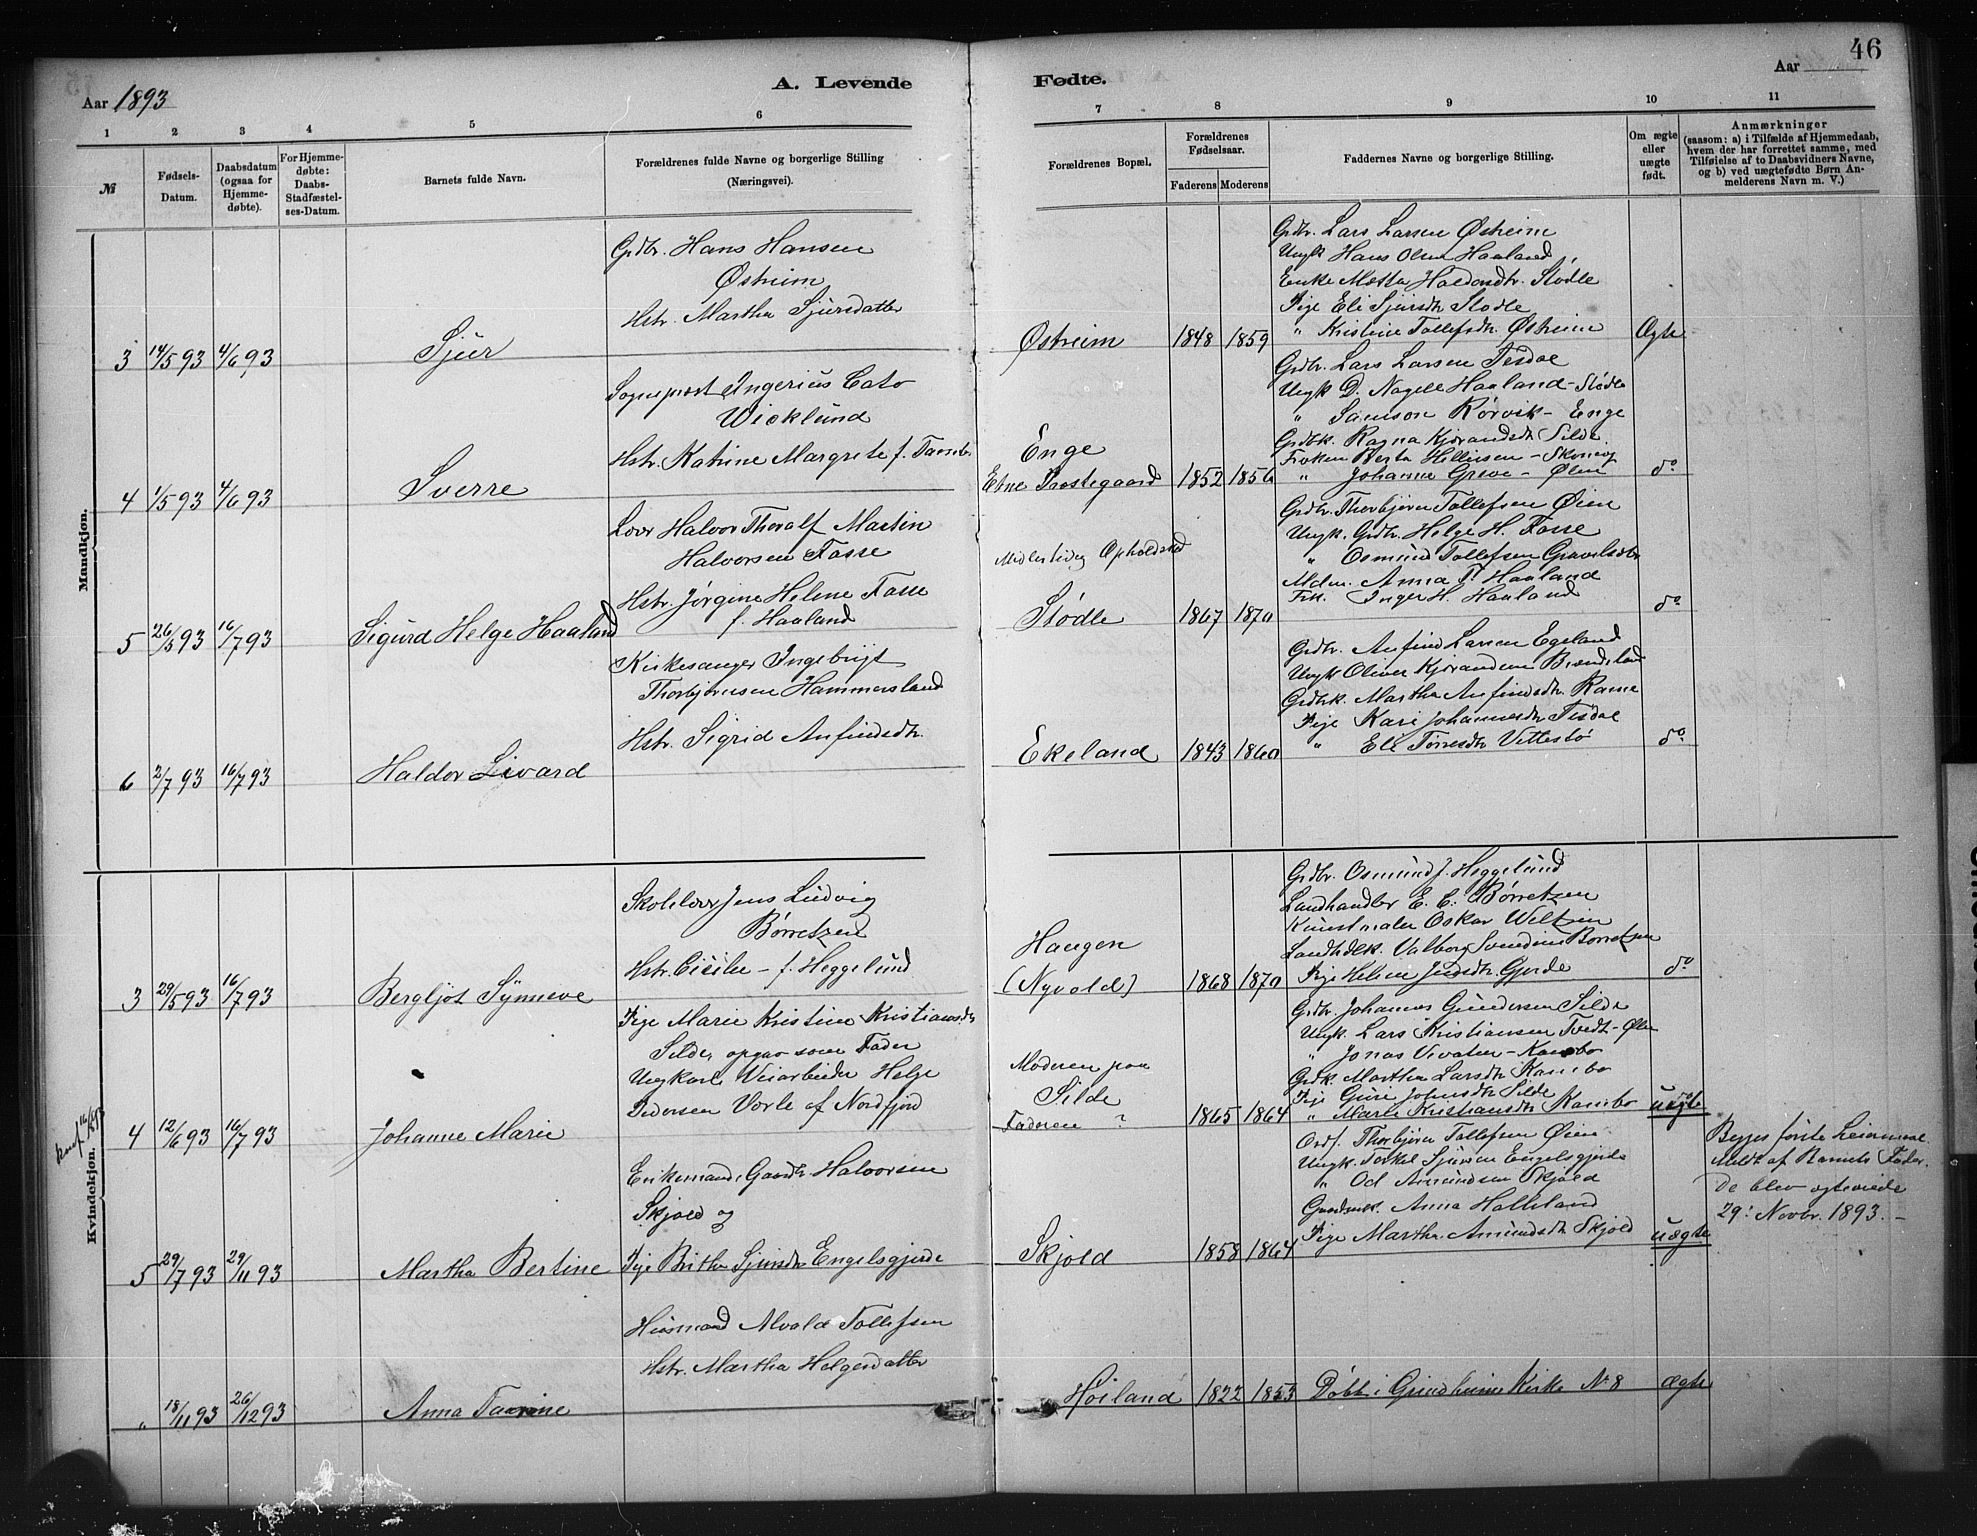 46
Aar 1893
A. Levende
Fødte.
Aar
1 2 3 4 5 6 7 8 9 10 11
№
Fødsels-
Datum.
Daabsdatum
(ogsaa for
Hjemme-
døbte).
For Hjemme-
døbte:
Daabs-
Stadfæstel-
ses-Datum.
Barnets fulde Navn.
Forældrenes fulde Navne og borgerlige Stilling
(Næringsvei).
Forældrenes Bopæl.
Forældrenes
Fødselsaar.
Faderens Moderens
Faddernes Navne og borgerlige Stilling.
Om ægte
eller
uægte
født.
Anmærkninger
(saasom: a) i Tilfælde af Hjemmedaab,
hvem der har forrettet samme, med
Tilføielse af to Daabsvidners Navne,
og b) ved uægtefødte Børn An-
melderens Navn m. V.)
Mandkjøn.
3 14/5 93 4/6 93
Sjur
Grdbr. Hans Hansen
Østreim
Hstr. Martha Sjursdatter
Østreim 1848 1859
Grdbr. Lars Larsen Østreim
Ungk Hans Olsen Haaland
Enke Metta Haldorsdtr. Stødle
Pige Eli Sjursdtr Stødle
" Kristine Tollefsdtr. Østreim
Ægte
4 1/5 93 4/6 93
Sverre
Sogneprest Ingerius Cato
Wicklund
Hstr. Katrine Margrete f.
Enge
Etne Prestegaard 1852 1856
Grdbr. Lars Larsen Tesdal
Ungk D. Nagell Haaland - Stødle
" Samson Rørvik - Enge
Grdbk. Ragna Kjørandsdtr Silde.
Frøken Berta Hellesen - Skonevig
" Johanne Greve - Ølen
do
5 26/5 93 16/7 93
Sigurd Helge Haaland
Lærr Halvor Thoralf Martin
Halvorsen Fosse
Hstr. Jørgine Helene Fosse
f. Haaland
Midlertidig Opholdsted
Stødle 1867 1870
Grdbr. Thorbjørn Tollefsen Øien
Ungk. Grdbr. Helge H. Fosse
" Osmund Tollefsen
Anna T. Haaland
Frk. Inger H. Haaland
do
6 2/7 93 16/7 93
Haldor Sivard
Kirkesanger Ingebrigt
Thorbjørnsen Hammersland
Hstr. Sigrid Anfindsdtr.
Ekeland 1843 1860
Grdbr. Anfind Larsen Egeland
Ungk Oliver Kjørandsen
Grdbk. Martha Anfindsdtr. Rame
Pige Kari Johannesdtr Tesdal
" Eli Torresdtr
do
Kvindekjøn.
3 29/5 93 16/7 93
Bergljot Synneve
Skolelærer Jens Ludvig
Børretzen
Hstr. Cicilie - f. Heggelund
Haugen
(Nyvold) 1868 1870
Grdbr. Osmund J. Heggelund
Landhandler E. C. Børretzen
Kunstmaler Oskar Weltzien
Landhdlk. Valborg Svendine Børretzen
Pige Helene Gjerde
do
4 12/6 93 16/7 93
Johanne Marie
Pige Marie Kristine Kristiansdtr
Silde, opgav som Fader
Ungkarl Veiarbeider Helge
Pedersen Vorle af Nordfjord
Moderen paa
Silde
Faderen ? 1865 1864
Grdbr. Johannes Gundersen Silde
Ungk. Lars Kristiansen Tvedt - Ølen
" Jonas
Grdk. Martha Larsdtr
Pige Guri Johnsdtr Silde
" Marie Kristiansdtr
uægte
5 29/7 93 29/11 93
Martha Bertine
Enkemand, Gaardbr. Halvorsen
Skjold og
Pige Britha Sjursdtr Engelsgjerde
Skjold 1858 1864
Ordf. Thorbjørn Tollefsen Øien
Ungk. Torkel Sjursen Engelsgjerde
" Od Amundsen Skjold
Anna Halleland
Pige Martha Amundsdtr Skjold
uægte
Begges første Leiermaal.
Meldt af Barnets Fader.
De blev ægteviede
29: Novbr. 1893. -
" 18/11 93 26/12 93
Anna Taarine
Husmand Alvald Tollefsen
Hstr. Martha Helgesdatter
Høiland 1822 1853
Døbt i Grindheims Kirke No 8
ægte